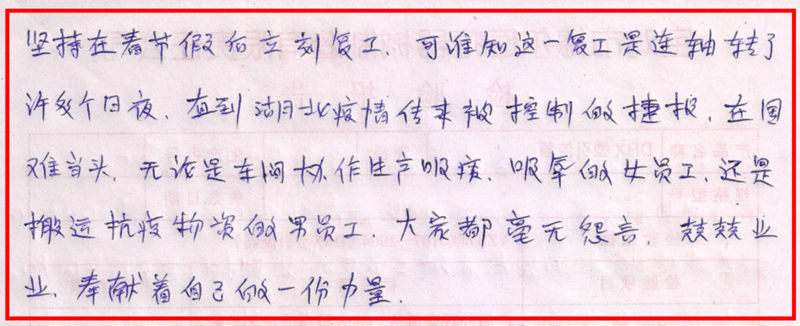 坚持在春节假后立刻复工,可谁知这一复工是连轴转了
许多个日夜,直到湖北疫情传来被控制的捷报,在国
难当头,无论是车间协作生产吸痰、吸的女员工,还是
搬运抗疫物资的男员工,大家都毫无怨言,兢兢业
业,奉献着自己的一份力量.